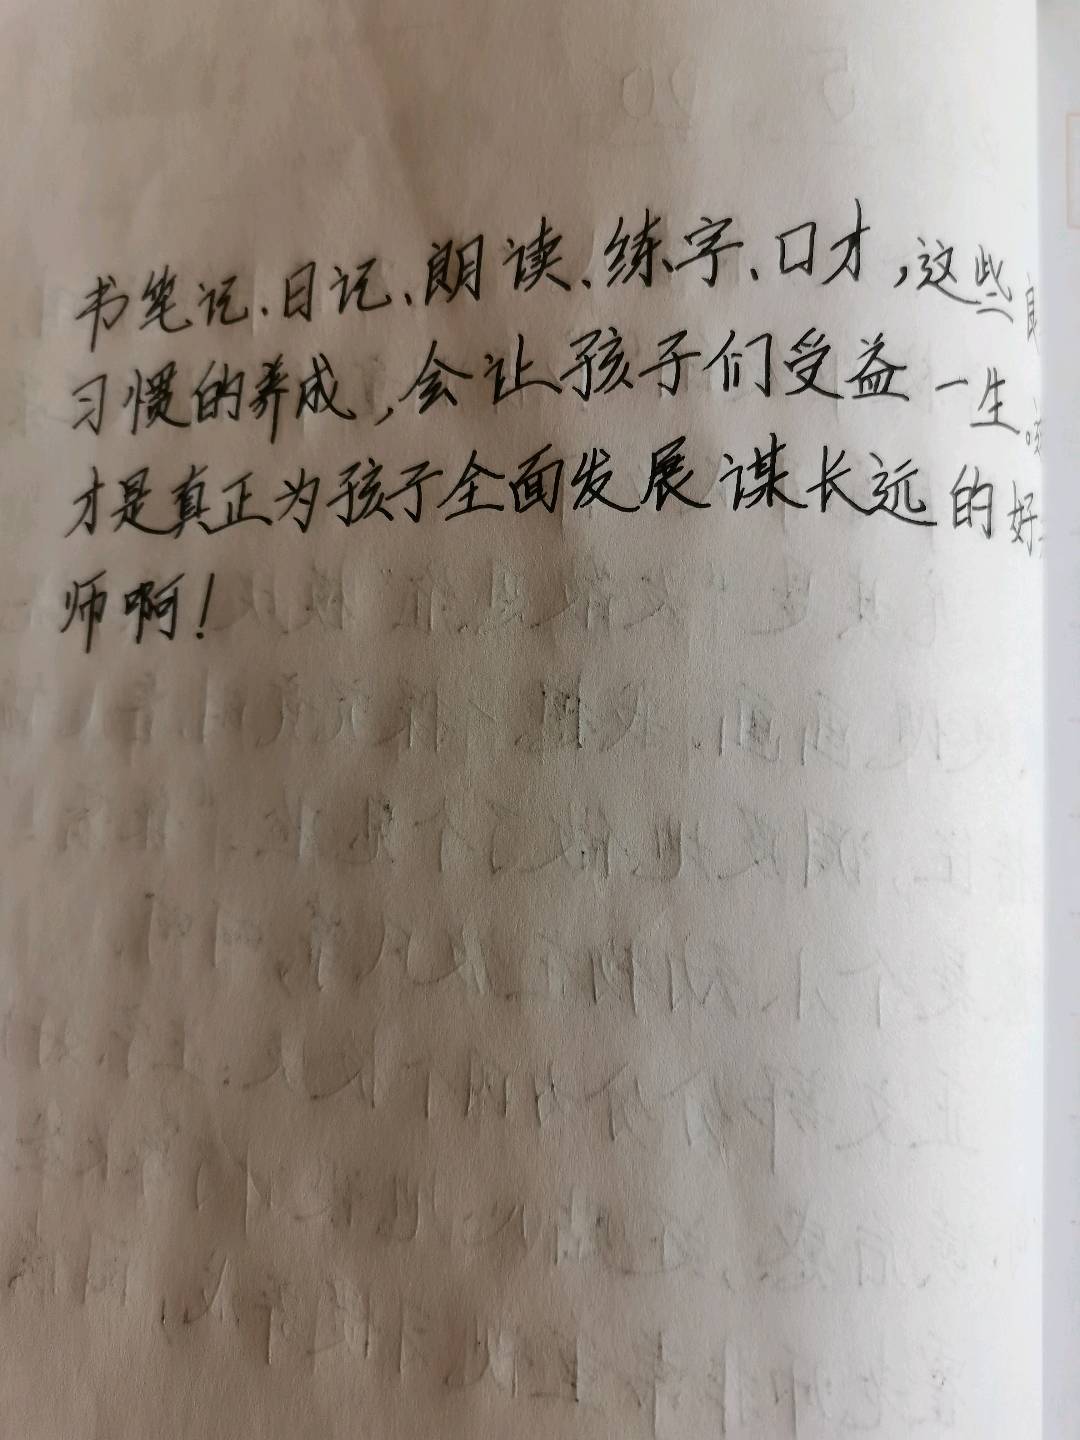 书笔记、日记、朗读、练字、口才，这些良
习惯的养成，会让孩子们受益一生。
才是真正为孩子全面发展谋长远的好
师啊！